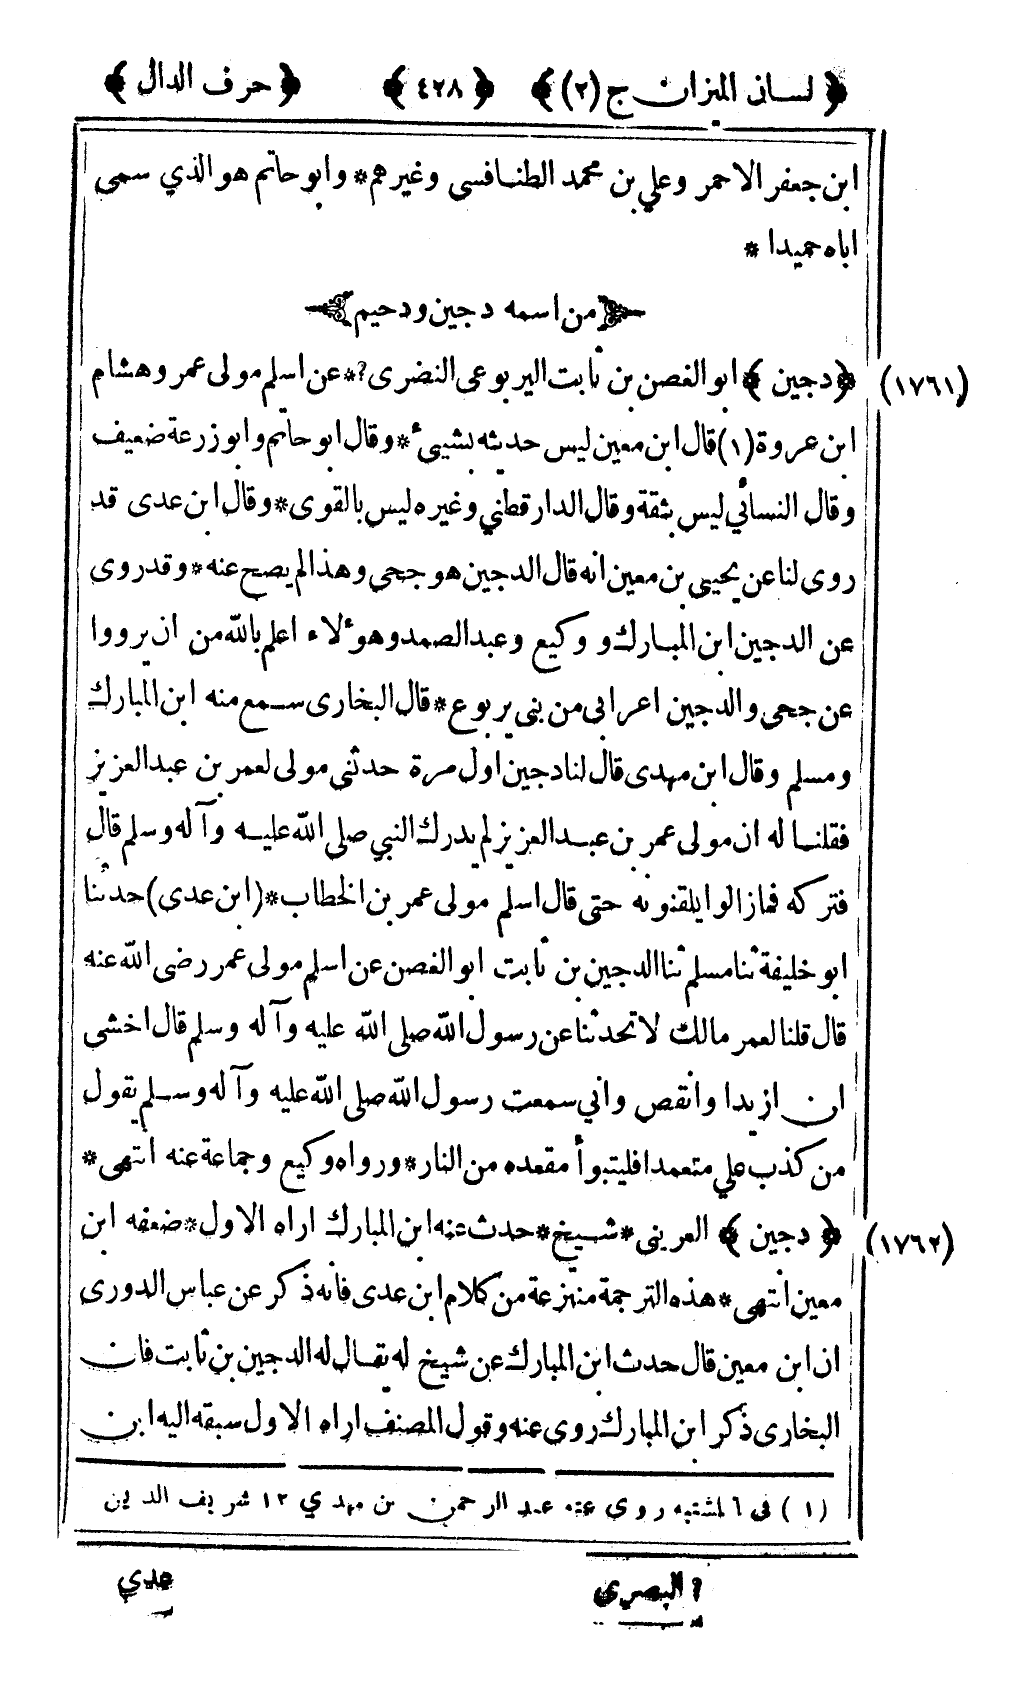 ﴿ لسان الميزان ج (٢) ﴾ ﴿ ٤٢٨ ﴾ ﴿ حرف الدال ﴾
ابن جعفر الاحمر وعلي بن محمد الطنافسى وغيرهم * وابو حاتم هو الذي سمى
اباه حميدا *
من اسمه دجين ودحيم
(١٧٦١) ﴿ دجين ﴾ ابو الغصن بن ثابت اليربوعى النضرى ? * عن اسلم مولى عمر وهشام
ابن عروة (١) قال ابن معين ليس حديثه بشيئ * وقال ابو حاتم وابو زرعة ضعيف
وقال النسائي ليس بثقة وقال الدارقطني وغيره ليس بالقوى * وقال ابن عدى قد
روى لنا عن يحيى بن معين انه قال الدجين هو جحى وهذا لم يصح عنه * وقد روى
عن الدجين ابن المبارك و وكيع وعبد الصمد وهؤلاء اعلم بالله من ان يرووا
عن جحى والدجين اعرابى من بنى يربوع * قال البخارى سمع منه ابن المبارك
ومسلم وقال ابن مهدى قال لنا دجين اول مرة حدثنى مولى لعمر بن عبد العزيز
فقلنا له ان مولى عمر بن عبد العزيز لم يدرك النبي صلى الله عليه وآله وسلم قال
فتركه فما زالوا يلقنونه حتى قال اسلم مولى عمر بن الخطاب * (ابن عدى) حدثنا
ابو خليفة ثنا مسلم ثنا الدجين بن ثابت ابو الغصن عن اسلم مولى عمر رضى الله عنه
قال قلنا لعمر مالك لا تحدثنا عن رسول الله صلى الله عليه وآله وسلم قال اخشى
ان ازيدا وانقص واني سمعت رسول الله صلى الله عليه وآله وسلم يقول
من كذب علي متعمدا فليتبوأ مقعده من النار * ورواه وكيع وجماعة عنه انتهى *
(١٧٦٢) ﴿ دجين ﴾ العرينى * شيخ * حدث عنه ابن المبارك اراه الاول * ضعفه ابن
معين انتهى * هذه الترجمة منتزعة من كلام ابن عدى فانه ذكر عن عباس الدورى
ان ابن معين قال حدث ابن المبارك عن شيخ له يقال له الدجين بن ثابت فان
البخارى ذكر ابن المبارك روى عنه وقول المصنف اراه الاول سبقه اليه ابن
(١) فى المشتبه روى عنه عبد الرحمن بن مهدي ١٢ شريف الدين
? البصري
عدي